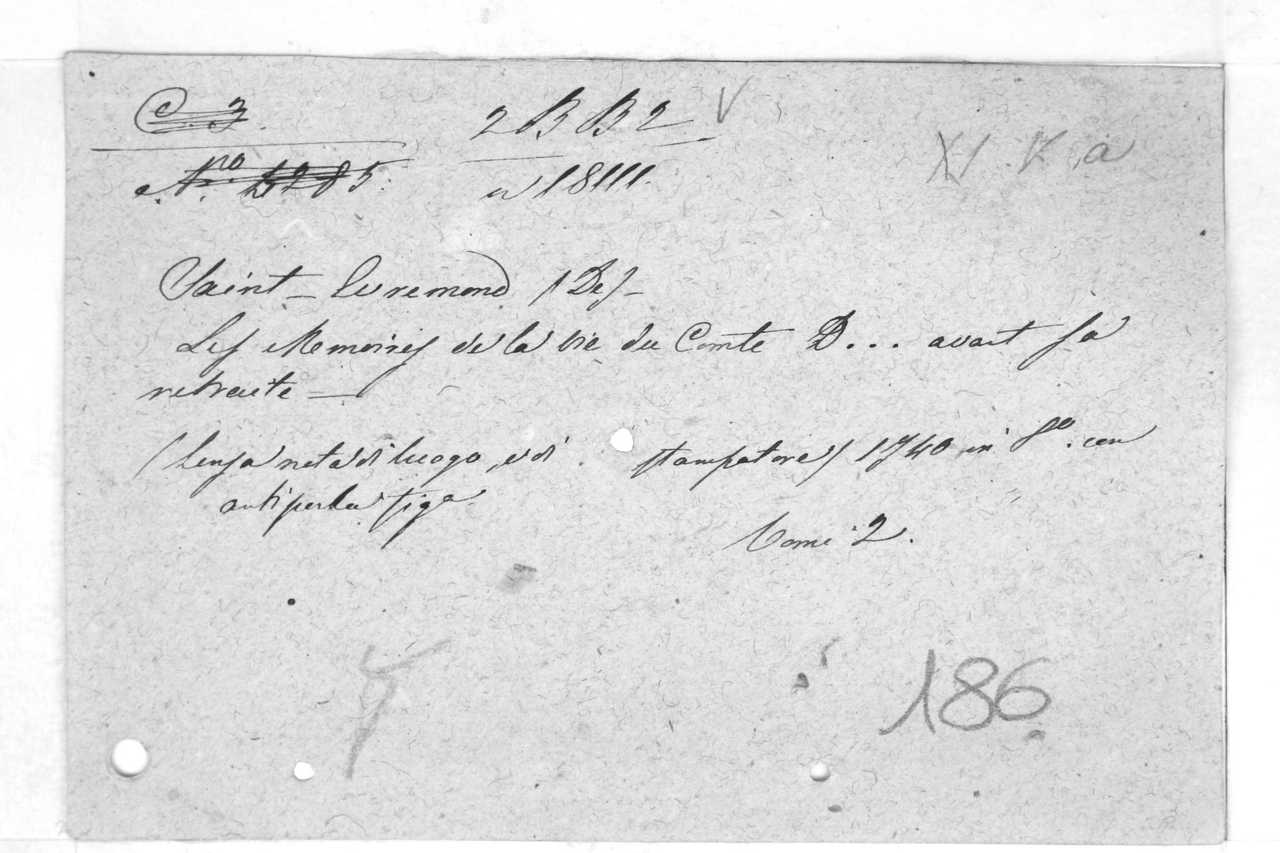 C. 3. 2 B B 2 V
XI K a
No. 5285. n 18111.
Saint-Evremond (De)-
Les Memoires de la vie du Comte D... avant sa
retraite —
(Senza nota di luogo, e di stampatore) 1740 in 8o. con
antiporta fig.
Tomi 2.
186